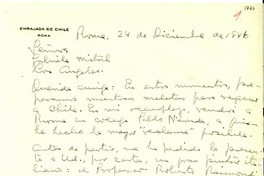 1
EMBAJADA DE CHILE
ROMA
Roma, 24 de Diciembre de 1946
Señora
Gabriela Mistral
Los Angeles.
Querida amiga: En estos momentos, pre-
paramos nuestras maletas para regresar
a Chile. En mi reemplazo, vendrá a
Roma su colega Pablo Neruda, a quien
he hecho la mayor "reclame" posible.
Antes de partir, me ha pedido le presen-
te a Ud., por carta, un gran pintor ita-
liano: el Profesor Roberto Raimondi